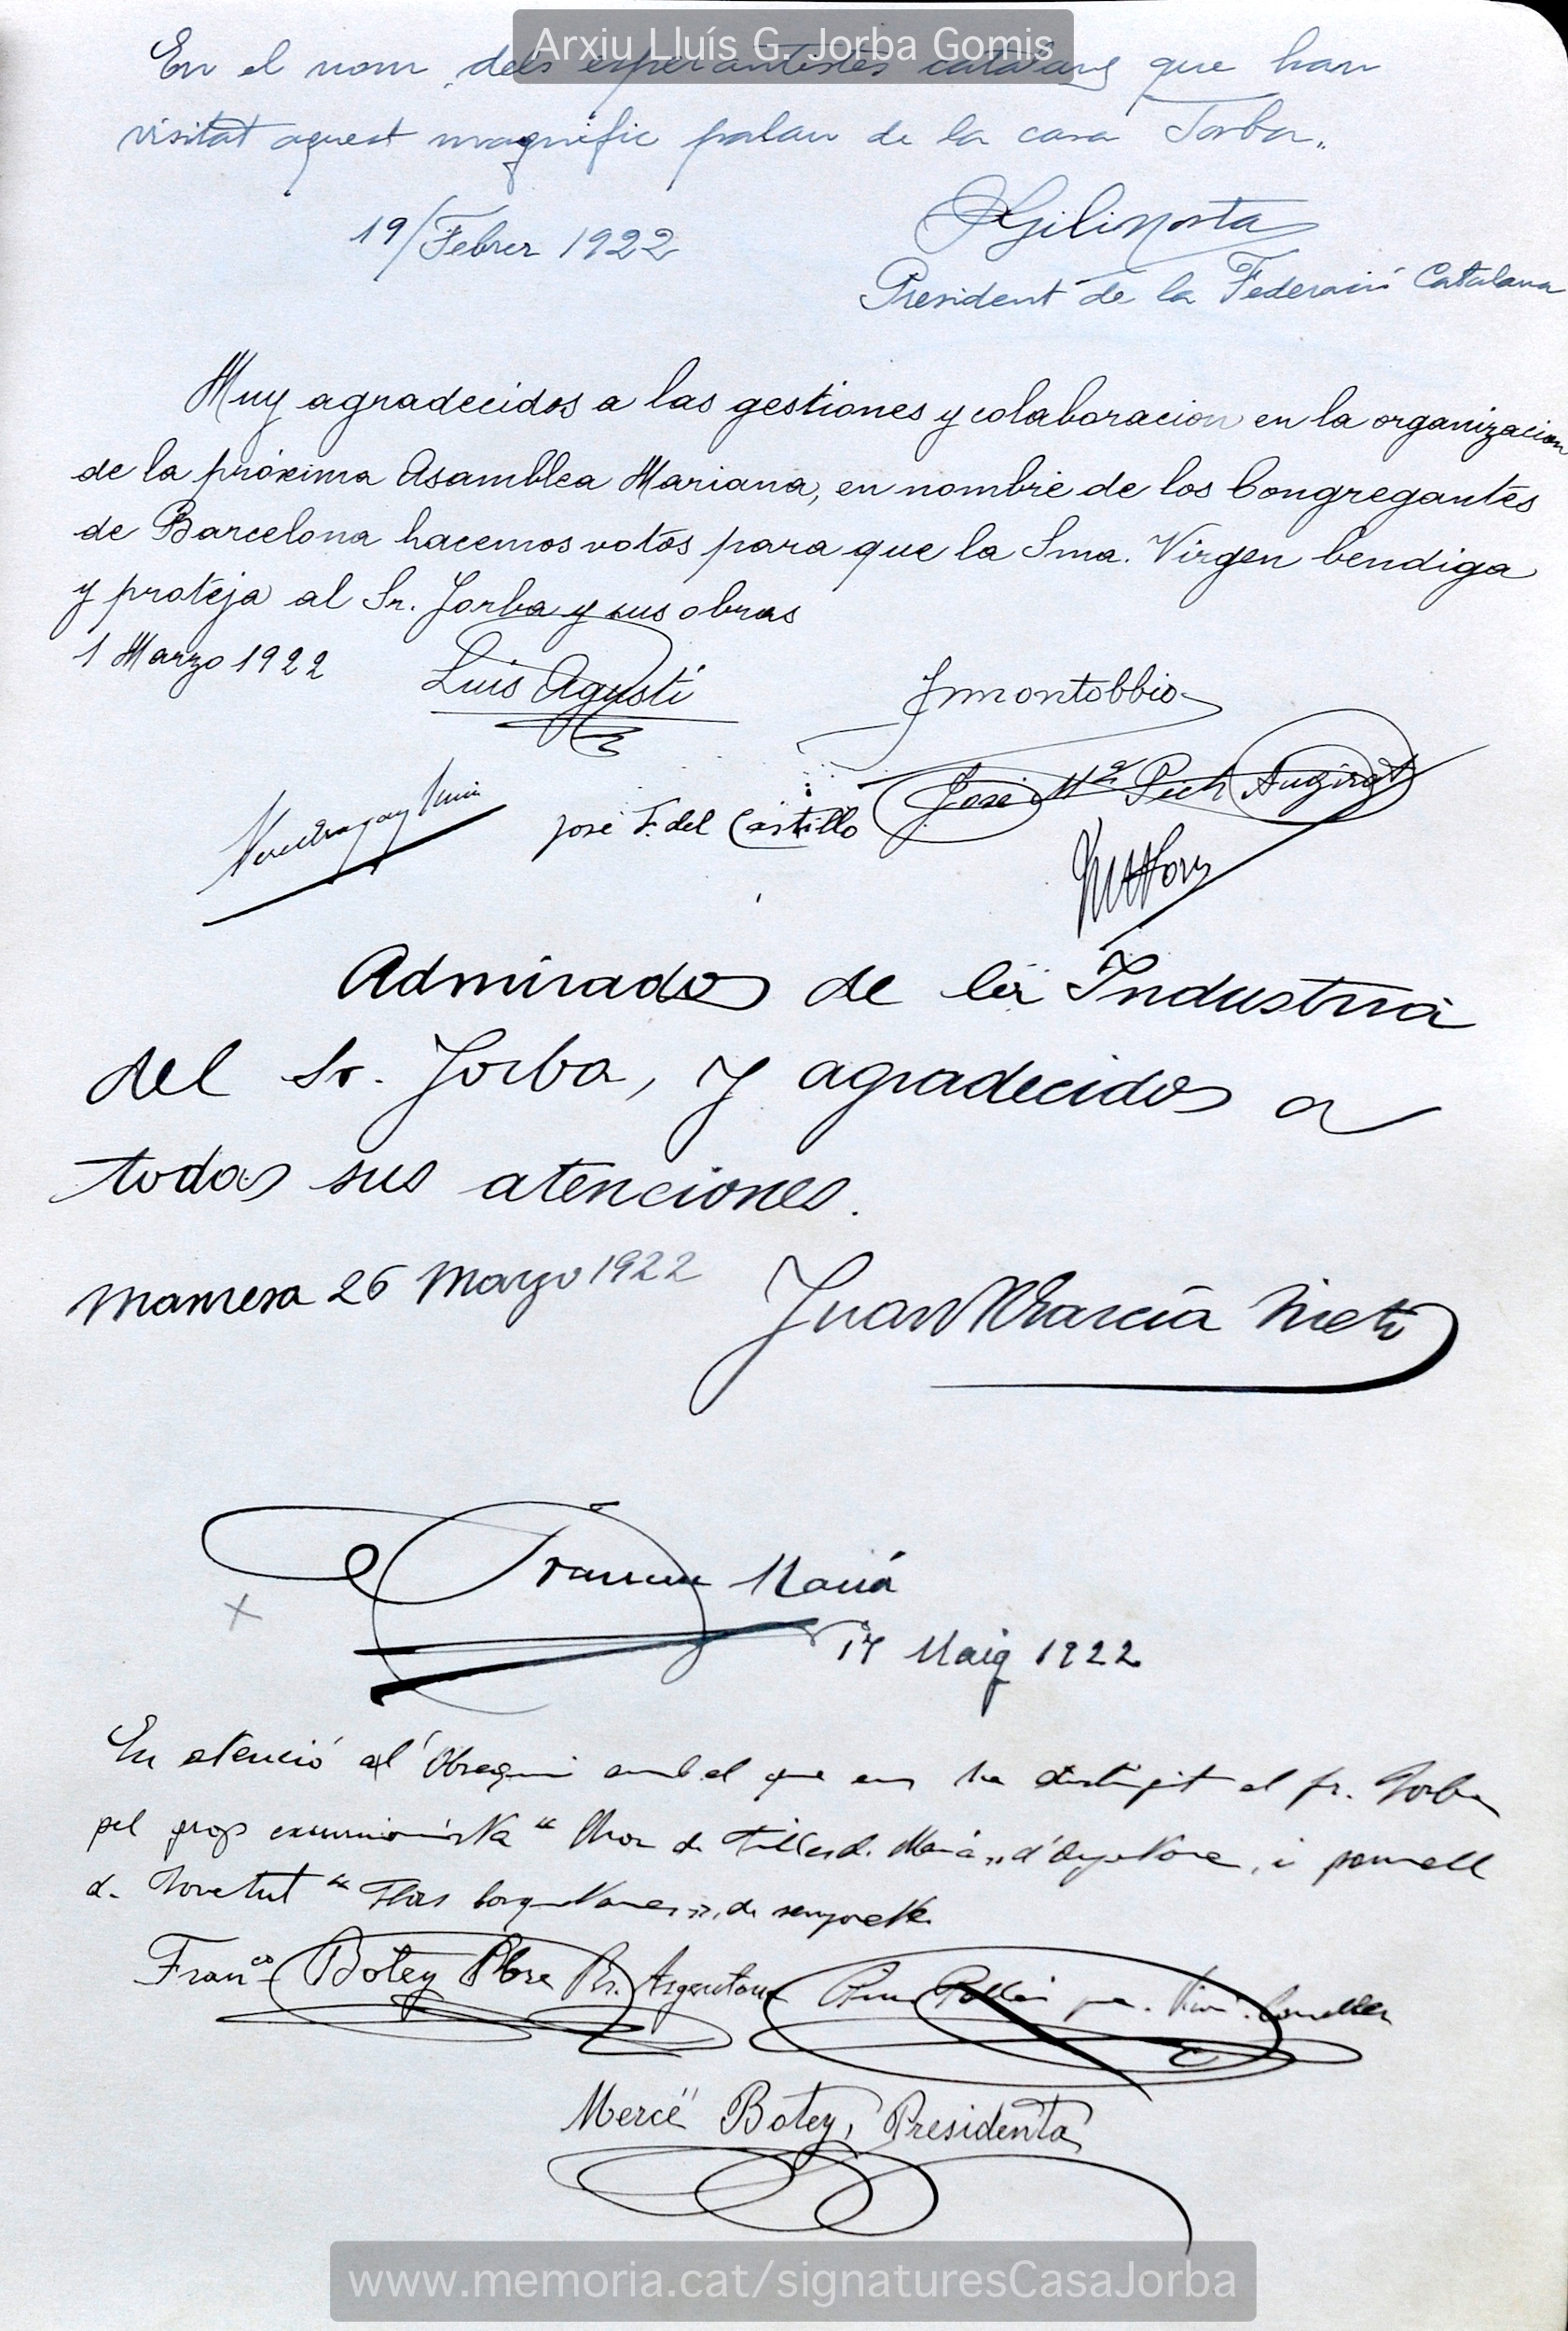 Arxiu Lluís G. Jorba Gomis
En el nom dels esperantistes catalans que han
visitat aquest magnífic palau de la casa Jorba.
19/Febrer 1922
President de la Federació Catalana
Muy agradecidos a las gestiones y colaboracion en la organizacion
de la próxima Asamblea Mariana, en nombre de los Congregantes
de Barcelona hacemos votos para que la Sma. Virgen bendiga
y proteja al Sr. Jorba y sus obras
1 Marzo 1922
Luis Agustí
J Montobbio
José F. del Castillo
José Mª Pich Augirot
Admirados de la Industria
del Sr. Jorba, y agradecidos a
todas sus atenciones.
Manresa 26 Marzo 1922
Juan García Nieto
Francesc Macià
14 Maig 1922
En atenció al Obsequi amb el que ens ha distingit el Sr. Jorba
pel grup excursionista “ d'Argentona, i pomell
de Joventut “Flors
Franco Botey Pbre Argentona
Mercè Botey, Presidenta
www.memoria.cat/signaturesCasaJorba